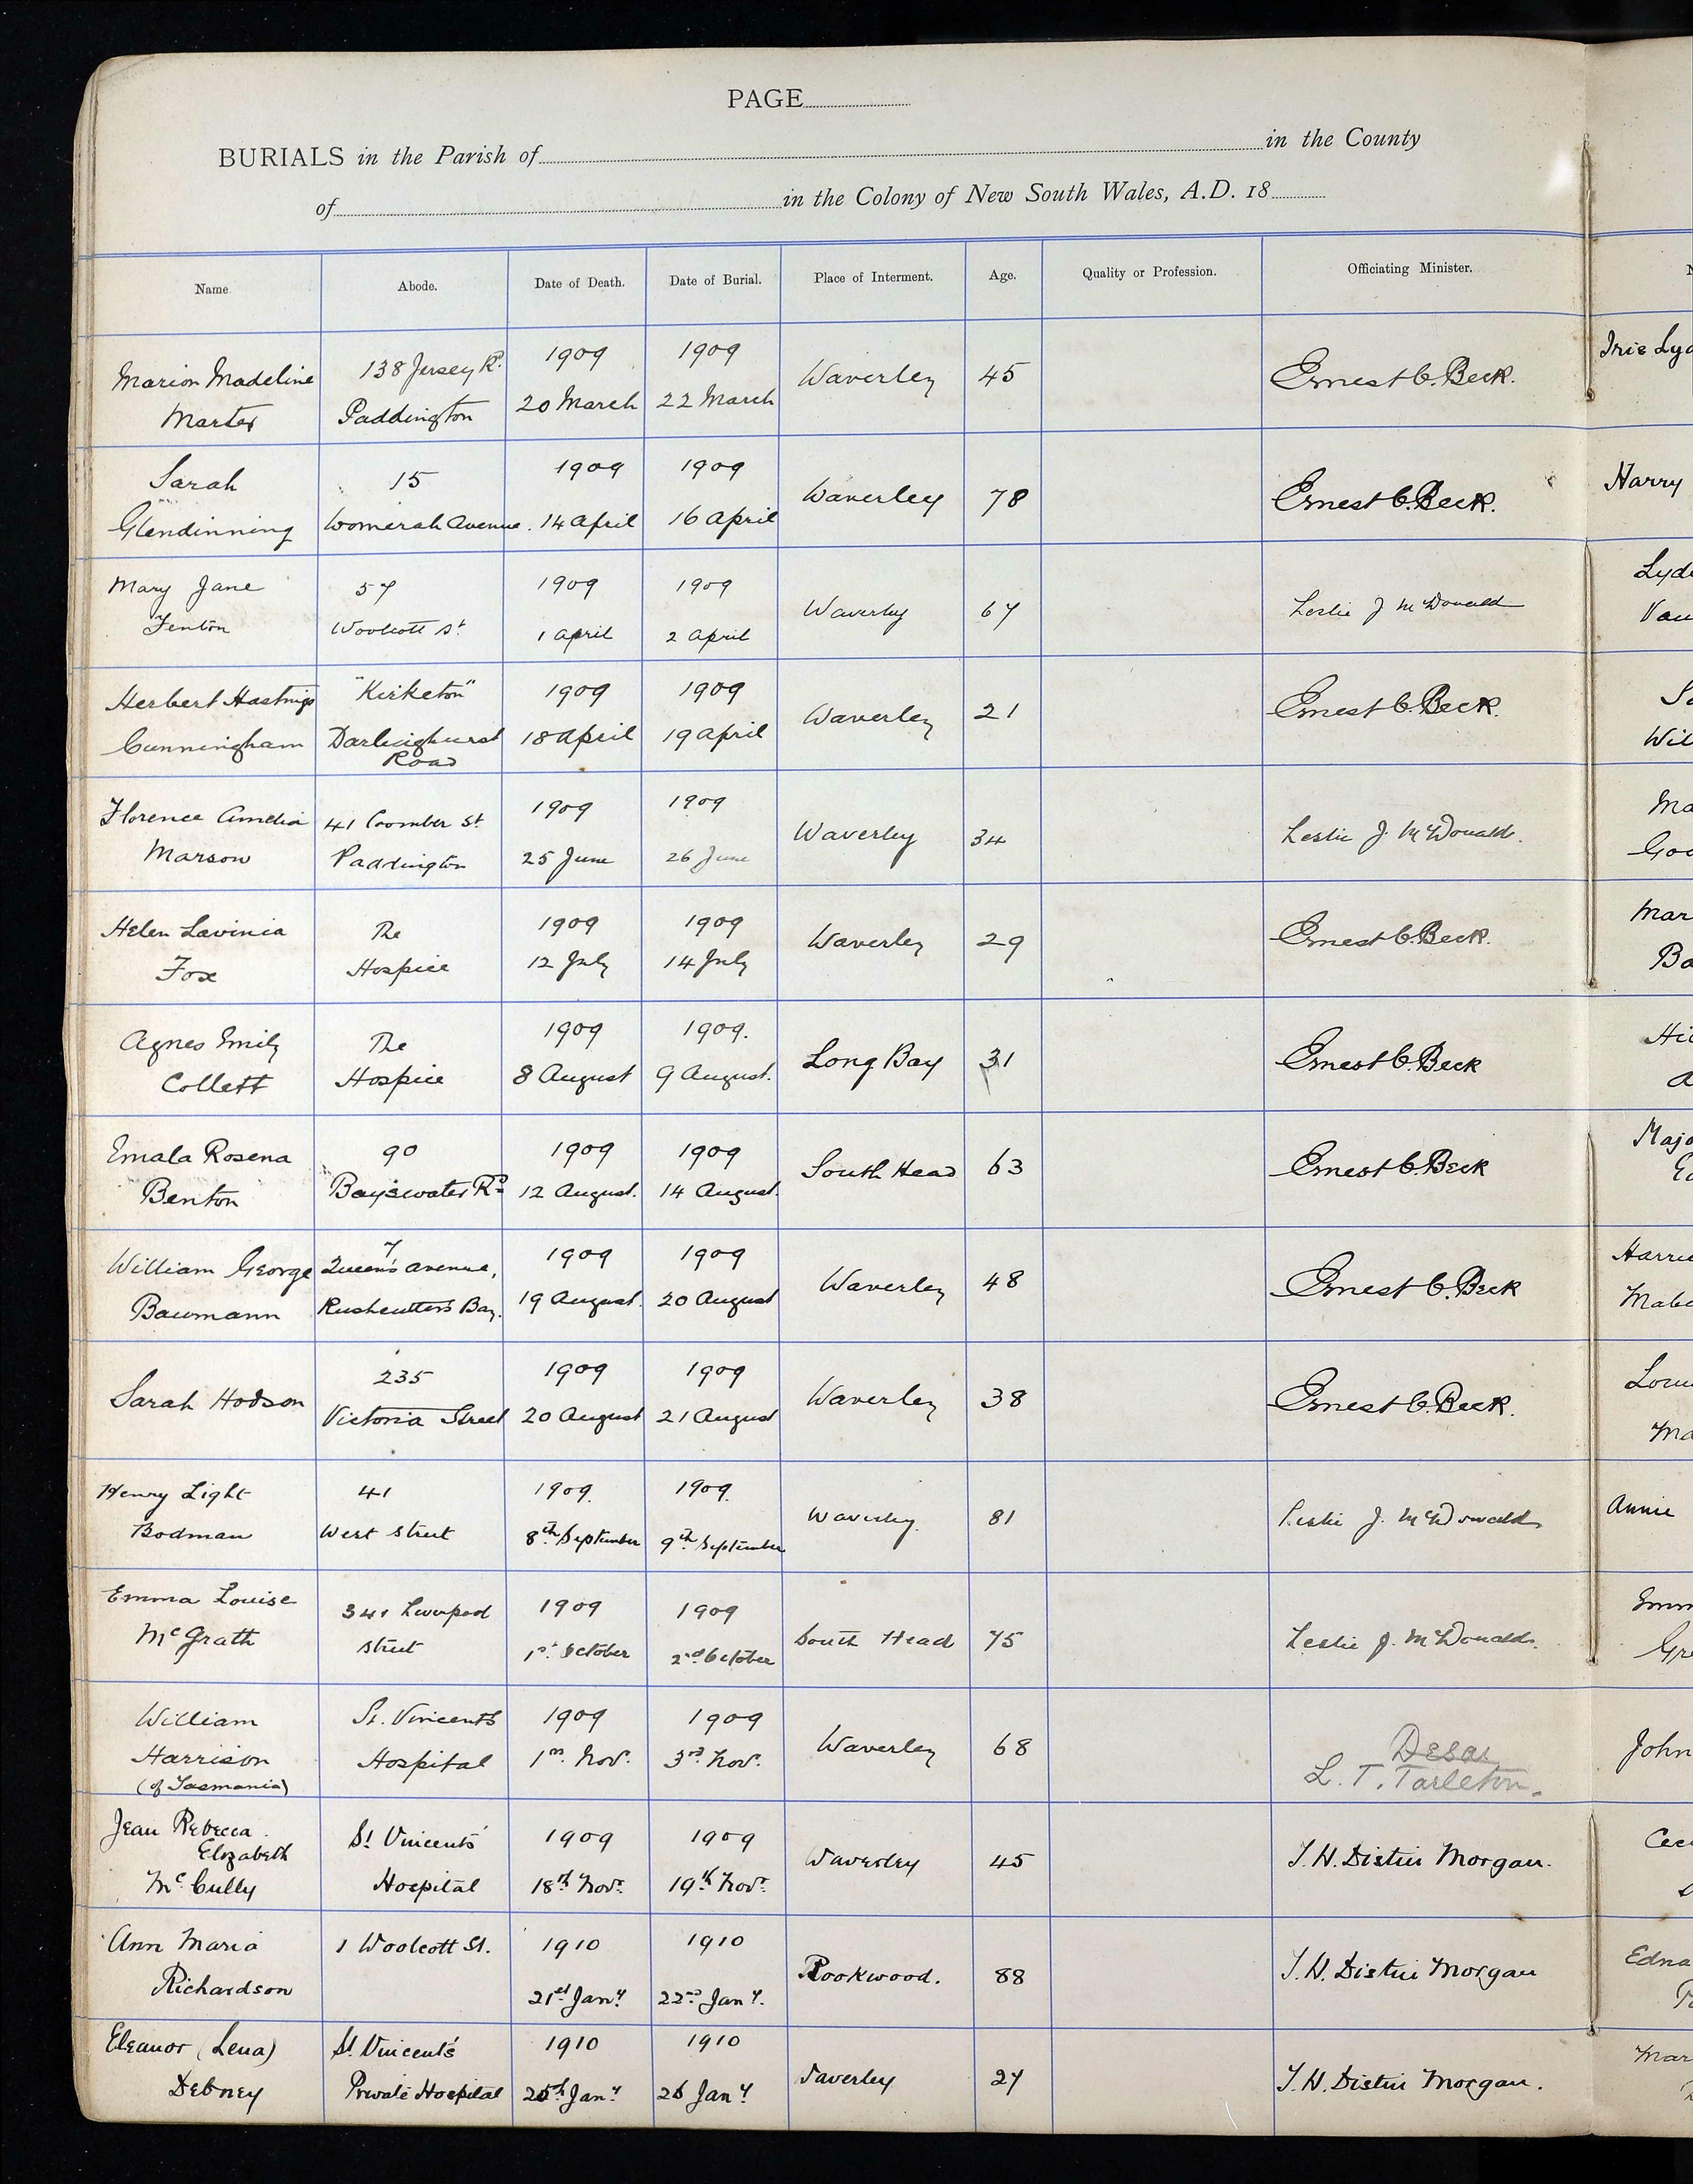 PAGE
BURIALS in the Parish of in the County
of in the Colony of New South Wales, A.D. 18
Name Abode. Date of Death. Date of Burial. Place of Interment. Age. Quality or Profession. Officiating Minister.
138 Jersey Rd. 1909 1909
Marion Madeline Waverley 45 Ernest C. Beck.
Marter Paddington 20 March 22 March
Sarah 15 1909 1909
Waverley 78 Ernest C. Beck.
Glendinning Woomerah Avenue. 14 April 16 April
Mary Jane 57 1909 1909
Waverley 67 Leslie J McDonald
Fenton Woolcott St. 1 April 2 April
Herbert Hastings "Kirketon" 1909 1909
Waverley 21 Ernest C. Beck.
Cunningham Darlinghurst 18 April 19 April
Road
Florence Amelia 41 Coomber St 1909 1909
Waverley 34 Leslie J. McDonald.
Marson Paddington 25 June 26 June
Helen Lavinia The 1909 1909
Waverley 29 Ernest C. Beck.
Fox Hospice 12 July 14 July
Agnes Emily The 1909 1909.
Long Bay 31 Ernest C. Beck
Collett Hospice 8 August 9 August.
Emala Rosena 90 1909 1909
South Head 63 Ernest C. Beck
Benton Bayswater Rd 12 August. 14 August.
7
William George Queen's Avenue, 1909 1909
Waverley 48 Ernest C. Beck
Baumann Rushcutters Bay. 19 August. 20 August
235 1909 1909
Sarah Hodson Waverley 38 Ernest C. Beck.
Victoria Street 20 August 21 August
Henry Light 41 1909. 1909.
Waverley. 81 Leslie J. McDonald
Bodman West Street 8th September 9th September
Emma Louise 341 Liverpool 1909 1909
South Head 75 Leslie J. McDonald.
McGrath Street 1st October 2nd October
William St. Vincent's 1909 1909
Harrison Hospital 1st Nov. 3rd Nov. Waverley 68
(of Tasmania) L. T. Tarleton.
Jean Rebecca St Vincents' 1909 1909
Elizabeth Waverley 45 T. H. Distin Morgan.
McCully Hospital 18th Novr. 19th Novr.
Ann Maria 1 Woolcott St. 1910 1910
Rookwood. 88 T. H. Distin Morgan
Richardson 21st Jany. 22nd Jany.
Eleanor (Lena) St. Vincent's 1910 1910
Waverley 27 T. H. Distin Morgan.
Debney Private Hospital 25th Jany. 26 Jany.
Harry
Annie
John
Edna